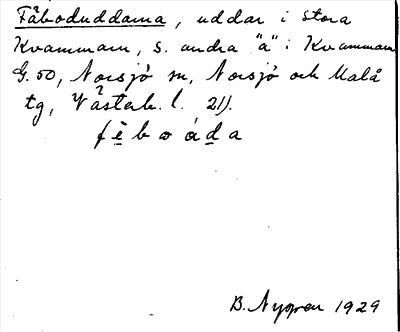 Fäboduddama, uddar i Stora
Kvammarn, s. andra "a" i Kvammarn
G. 50, Norsjö sn, Norsjö och Malå
tg, Västerb. l. 21).
fèbωáda
B. Nygren 1929